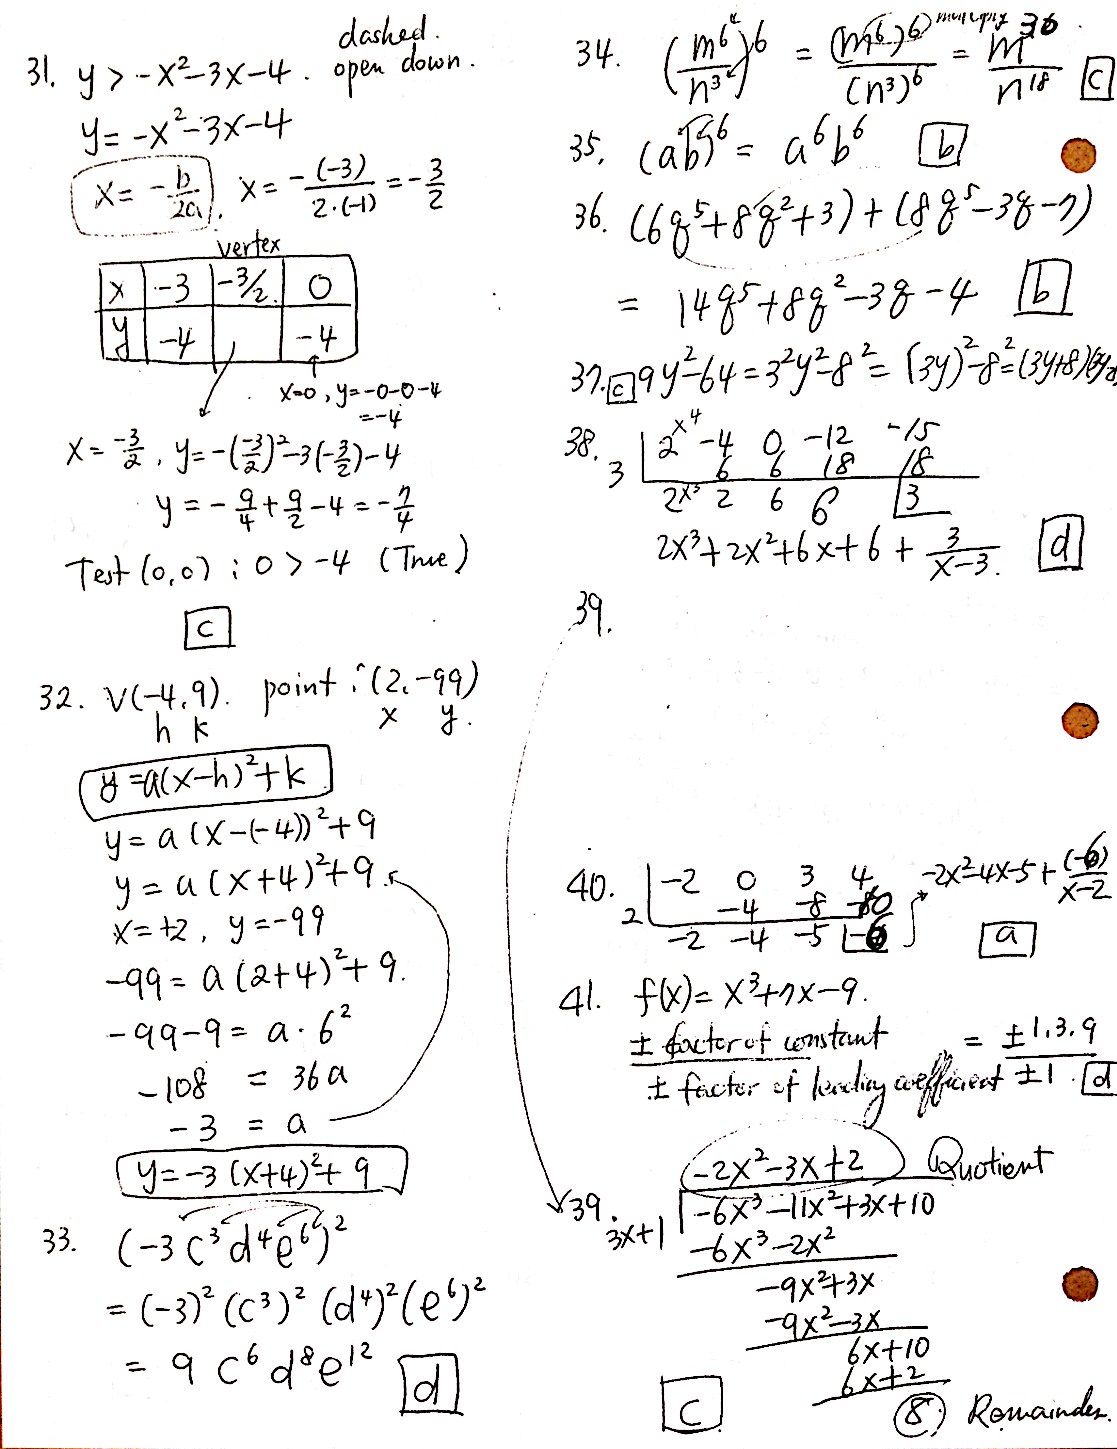 31. y > -x²-3x-4. dashed. open down.
y = -x²-3x-4
x = -b/2a, x = -(-3)/2·(-1) = -3/2
vertex
x | -3 | -3/2. | 0
y | -4 | | -4
x=0, y=-0-0-4
=-4
x = -3/2, y = -(-3/2)²-3(-3/2)-4
y = -9/4+9/2-4 = -7/4
Test (0,0) : 0 > -4 (True)
c
32. V(-4,9). point : (2,-99)
h k x y.
y=a(x-h)²+k
y = a(x-(-4))²+9
y = a(x+4)²+9.
x=+2, y=-99
-99 = a(2+4)²+9.
-99-9 = a·6²
-108 = 36a
-3 = a
y=-3(x+4)²+9
33. (-3c³d⁴e⁶)²
= (-3)²(c³)²(d⁴)²(e⁶)²
= 9c⁶d⁸e¹² d
34. (m⁶/n³)⁶ = (m⁶)⁶/(n³)⁶ = m³⁶/n¹⁸ multiply c
35. (ab)⁶ = a⁶b⁶ b
36. (6q⁵+8q²+3)+(8q⁵-3q-7)
= 14q⁵+8q²-3q-4 b
37. c 9y²-64=3²y²-8²=(3y)²-8²=(3y+8)(3y-8)
38. 3 | 2x⁴ -4 0 -12 -15
6 6 18 18
2x³ 2 6 6 3
2x³+2x²+6x+6+3/x-3. d
39.
40. 2 | -2 0 3 4 -2x²-4x-5+(-6)/x-2
-4 -8 -10
-2 -4 -5 -6 a
41. f(x)=x³+7x-9.
± factor of constant = ±1,3,9
± factor of leading coefficient ±1. d
-2x²-3x+2 Quotient
39. 3x+1 -6x³-11x²+3x+10
-6x³-2x²
-9x²+3x
-9x²-3x
6x+10
6x+2
c 8 Remainder.